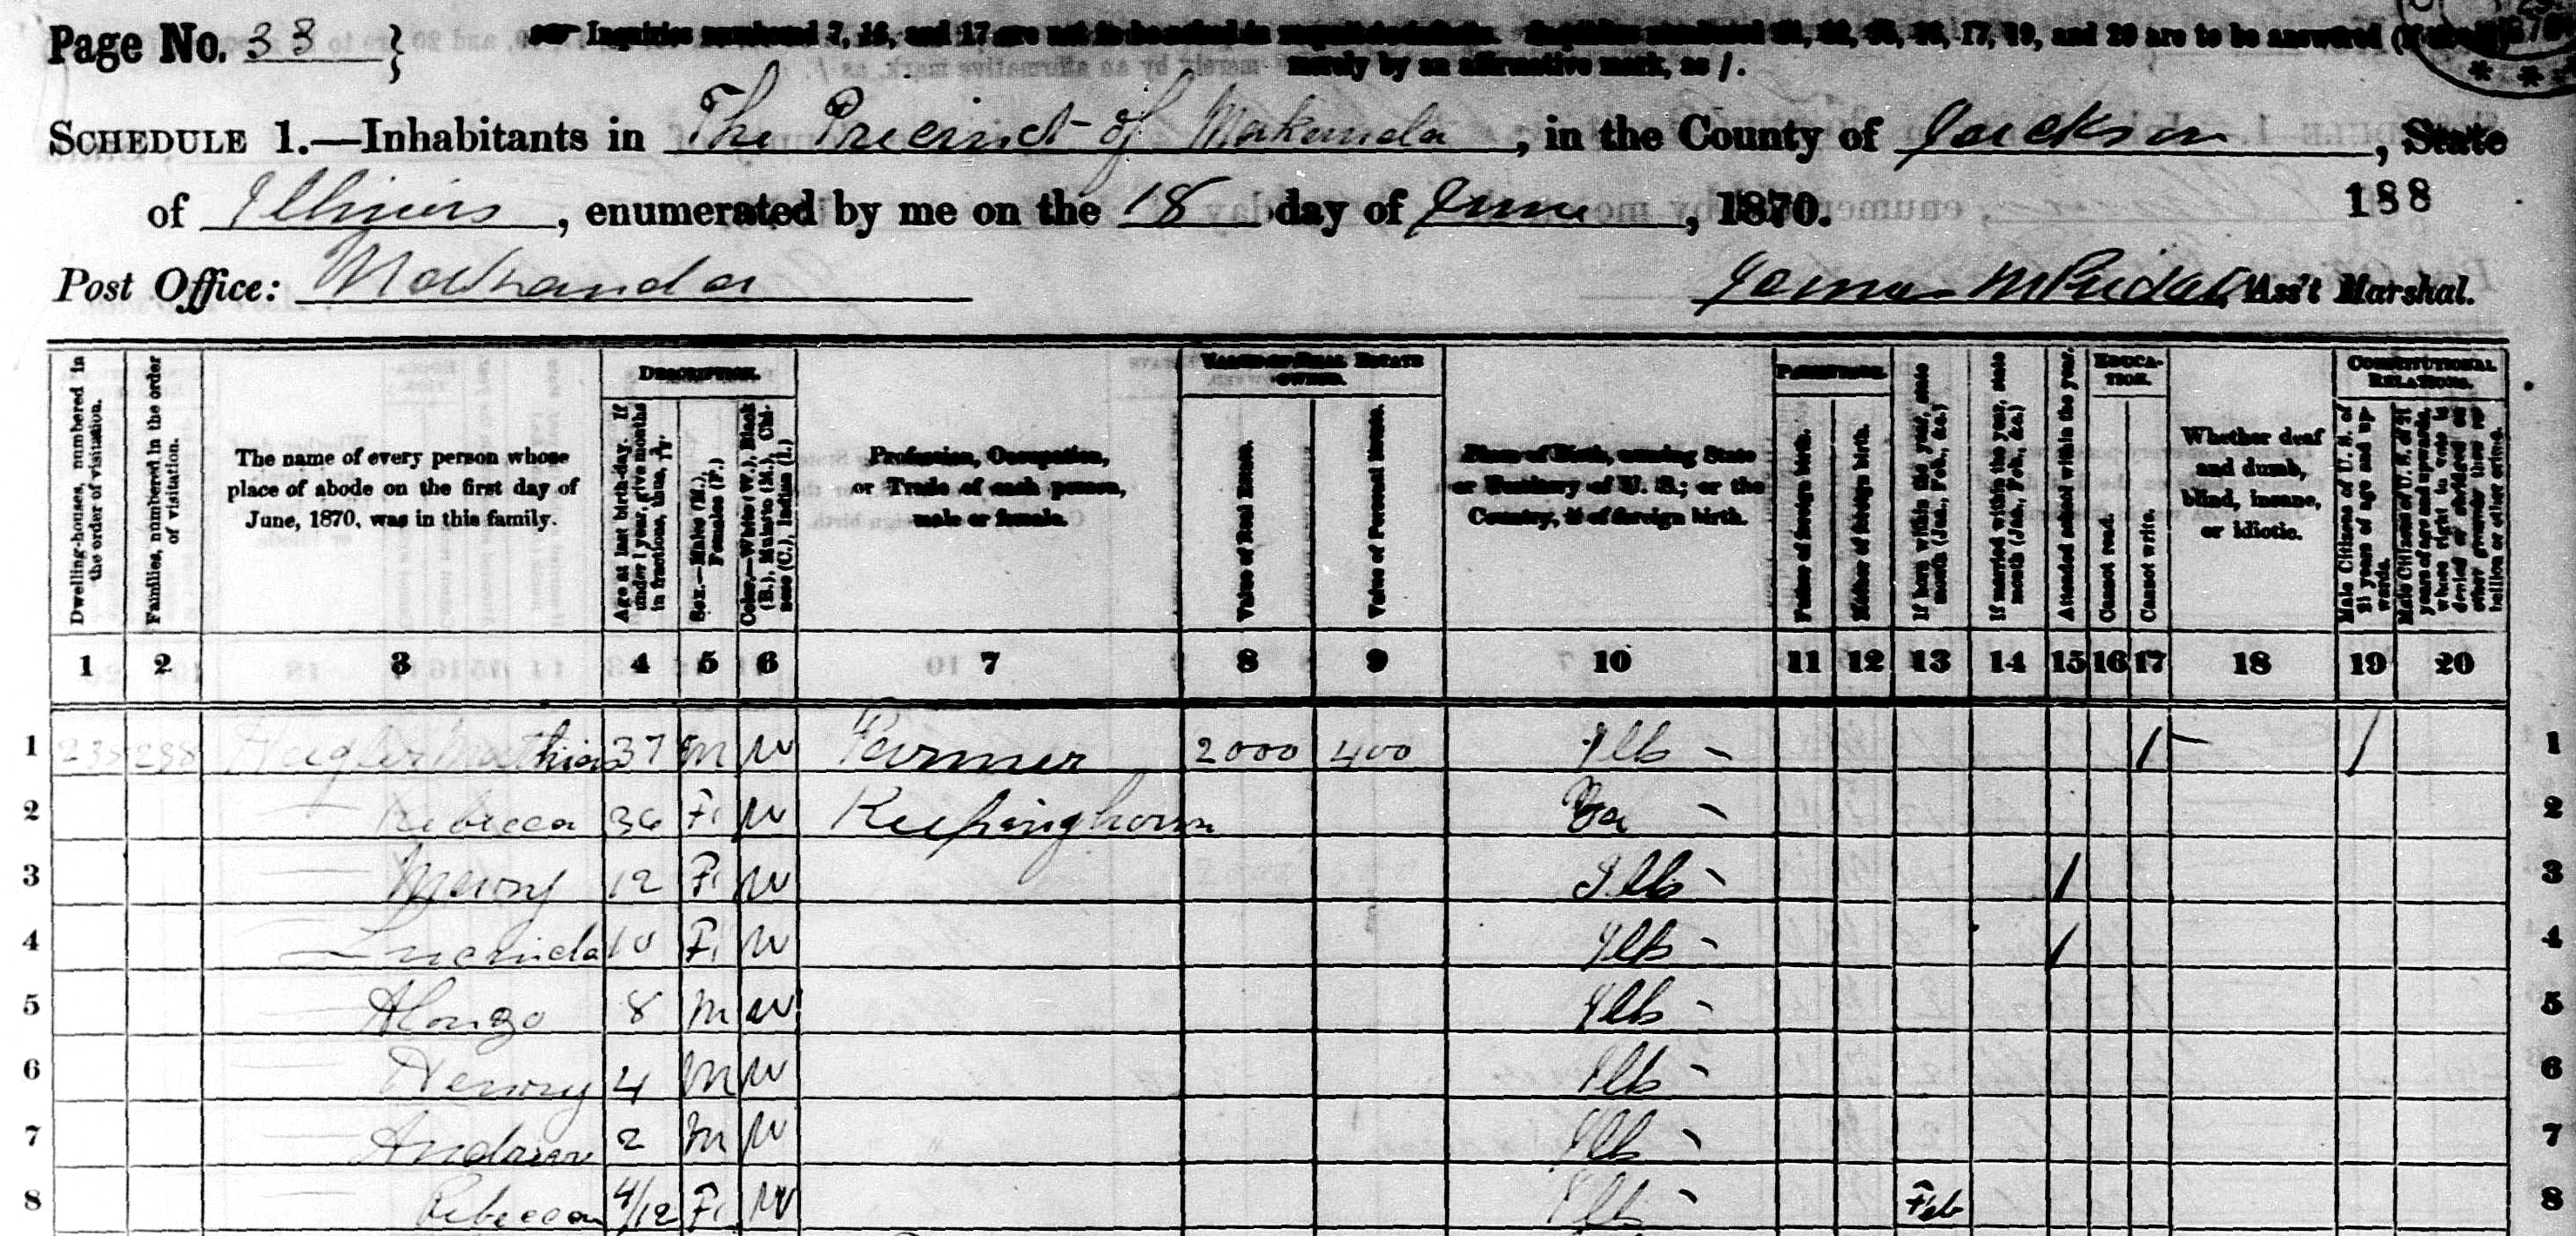 Page No. 33
Inquiries numbered 7, 16, and 17 are not to be asked in respect to infants. Inquiries numbered 11, 12, 15, 16, 17, 19, and 20 are to be answered (if at all)
merely by an affirmative mark, as /.
SCHEDULE 1.—Inhabitants in The Precinct of Makanda, in the County of Jackson, State
of Illinois, enumerated by me on the 18 day of June, 1870. 188
Post Office: Makanda James Ass't Marshal.
Dwelling-houses, numbered in the order of visitation.
Families, numbered in the order of visitation.
The name of every person whose place of abode on the first day of June, 1870, was in this family.
DESCRIPTION.
Age at last birth-day. If under 1 year, give months in fractions, thus,
Sex.—Males (M.), Females (F.)
Color.—White (W.), Black (B.), Mulatto (M.), Chinese (C.), Indian (I.)
Profession, Occupation, or Trade of each person, male or female.
VALUE OF REAL ESTATE OWNED.
Value of Real Estate.
Value of Personal Estate.
Place of Birth, naming State or Territory of U. S.; or the Country, if of foreign birth.
PARENTAGE.
Father of foreign birth.
Mother of foreign birth.
If born within the year, state month (Jan., Feb., &c.)
If married within the year, state month (Jan., Feb., &c.)
Attended school within the year.
EDUCATION.
Cannot read.
Cannot write.
Whether deaf and dumb, blind, insane, or idiotic.
CONSTITUTIONAL RELATIONS.
Male Citizens of U. S. of 21 years of age and upwards.
Male Citizens of U. S. of 21 years of age and upwards, whose right to vote is denied or abridged on other grounds than rebellion or other crime.
1 2 3 4 5 6 7 8 9 10 11 12 13 14 15 16 17 18 19 20
1 Mathias 37 M W Farmer 2000 400 Ills / / 1
2 Rebecca 36 F W Keeping house 2
3 Mary 12 F W Ills / 3
4 Lucinda 10 F W Ills / 4
5 Alonzo 8 M W Ills 5
6 Henry 4 M W Ills 6
7 Andrew 2 M W Ills 7
8 Rebecca 4/12 F W Ills Feb 8